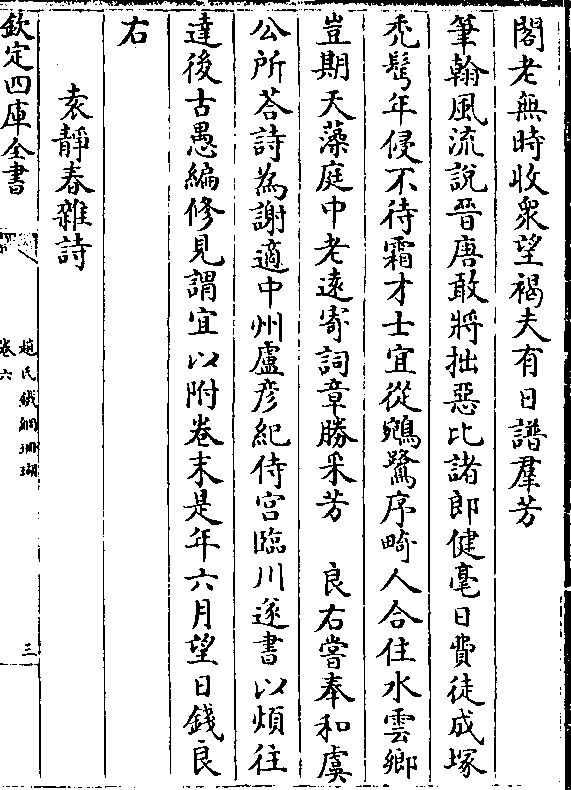 閣老無時收衆望褐夫有日譜羣芳
筆翰風流說晉唐敢將拙惡比諸郎健毫日費徒成塚
禿鬂年侵不待霜才士宜從鵷鷺序畸人合住水雲鄉
豈期天藻庭中老遠寄詞章勝采芳　良右嘗奉和虞
公所荅詩為謝適中州盧彦紀侍宫臨川遂書以煩往
達後古愚編修見謂宜以附卷末是年六月望日錢良
右
袁靜春雜詩
欽定四庫全書
趙氏鐵網珊瑚
卷六
三